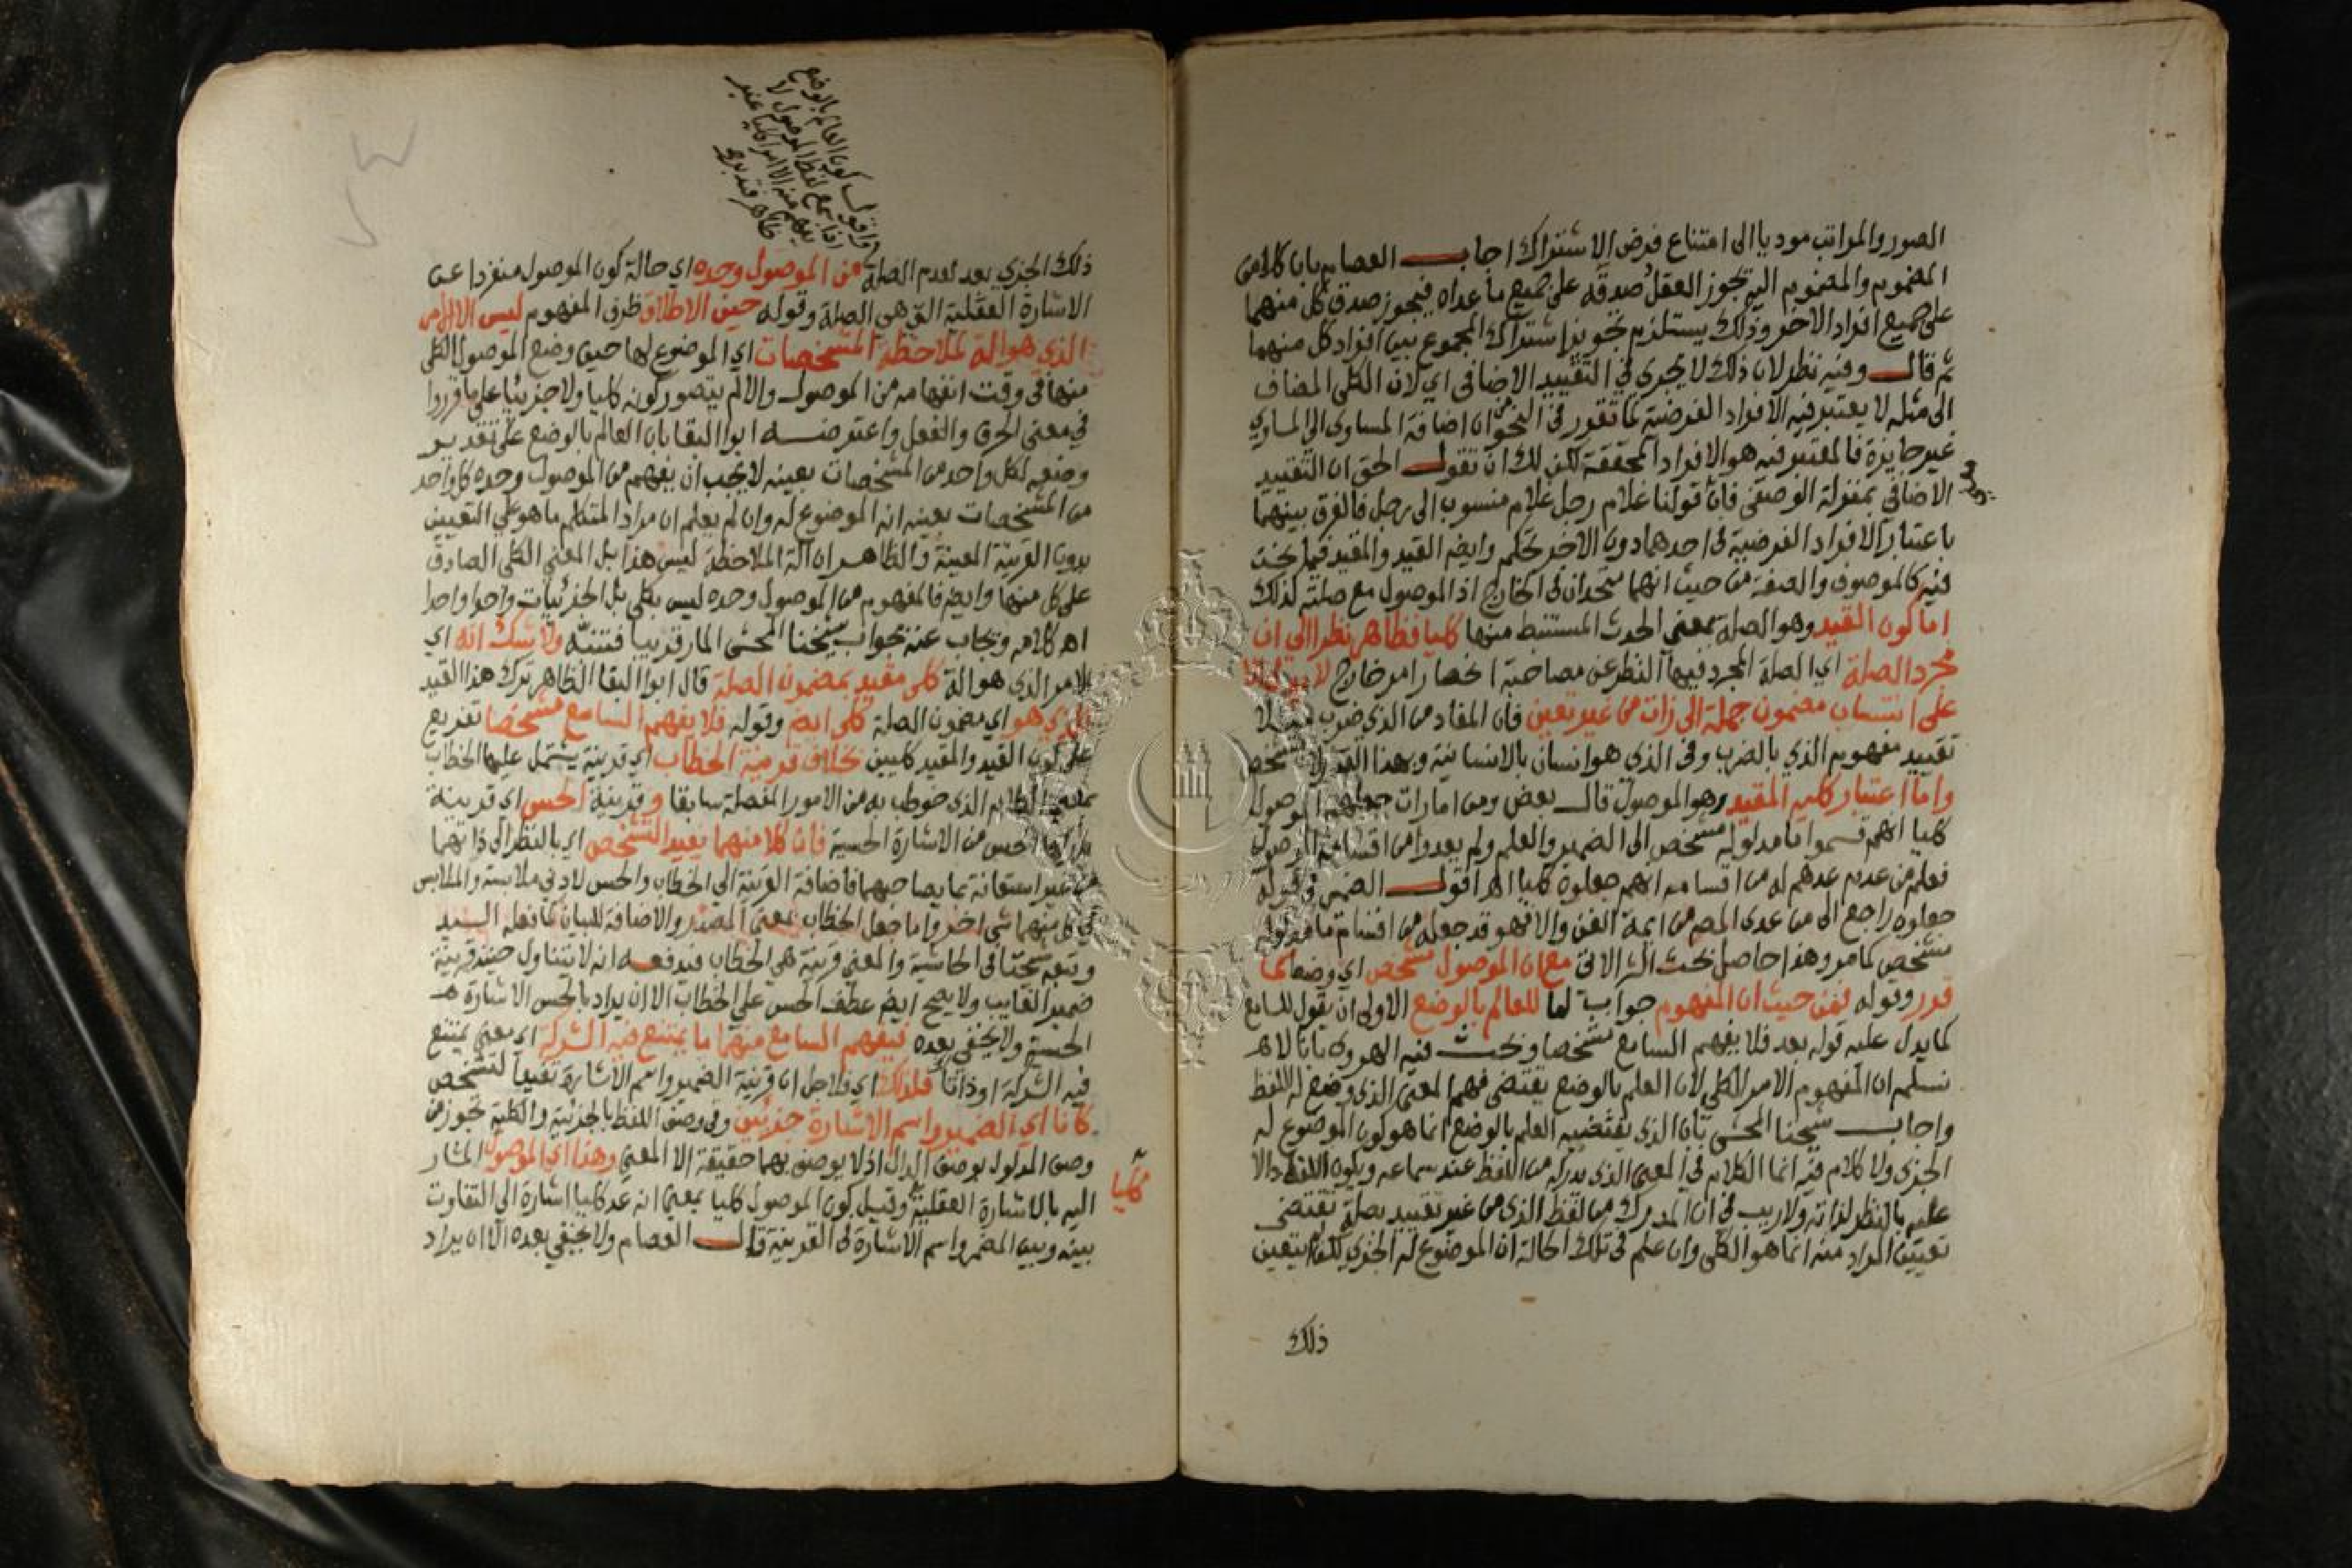 الصور والمراتب موديا الى امتناع فرض الاشتراك اجاب العصام بان كلا من
المضموم والمضموم اليه تجوز العقل صدقه على جميع ما عداه فيجوز صدق كل منهما
على جميع افراد الاخر وذلك يستلزم تجويز اشتراك المجموع بين افراد كل منهما
ثم قال وفيه نظر لان ذلك لا يجري في التقييد الاضافي اي لان الكلى المضاف
الى مثله لا يعتبر فيه الافراد الفرضية لما تقرر في النحو من ان اضافة المساوى الى المساوي
غير جايزة فالمعتبر فيه هو الافراد المحققة لكن لك ان تقول الحق ان التقييد
الاضافي بمنزلة الوصفى فان قولنا غلام رجل غلام منسوب الى رجل فالفرق بينهما
باعتبار الافراد الفرضية في احدهما دون الاخر تحكم وايضا القيد والمقيد فيما نحن
فيه كالموصوف والصفة من حيث انهما متحدان في الخارج اذ الموصول مع صلته كذلك
اما كون القيد وهو الصلة بمعنى الحدث المستنبط منها كليا فظاهر نظرا الى ان
مجرد الصلة اي الصلة المجرد فيها النظر عن مصاحبة انحصار امر خارج لا يدل الا
على انتساب مضمون جملة الى ذات من غير تعين فان المفاد من الذي ضرب مثلا
تقييد مفهوم الذي بالضرب وفى الذي هو انسان بالانسانية وبهذا القدر لا تشخص
واما اعتبار كلية المقيد وهو الموصول قال بعض ومن امارات جعلهم الموصول
كليا انهم قسموا ما مدلوله مشخص الى الضمير والعلم ولم يعدوا من اقسامه الموصول
فعلم من عدم عدهم له من اقسامه انهم جعلوه كليا اهـ اقول الضمير في قوله
جعلوه راجع الى من عدى المصـ من ايمة الفن والا فهو قد جعله من اقسام ما مدلوله
مشخص كما مر وهذا حاصل بحث الشـ الاتى مع ان الموصول مشخص اي وضعا كما
قرر وقوله فمن حيث ان المفهوم جواب لما للعالم بالوضع الاولى ان يقول للسامع
كما يدل عليه قوله بعد فلا يفهم السامع مشخصا وبحث فيه الهروى بانا لا
نسلم ان المفهوم الامر الكلى لان العلم بالوضع يقتضى فهم المعنى الذى وضع له اللفظ
واجاب شيخنا المحشى بان الذى يقتضيه العلم بالوضع انما هو كون الموضوع له
الجزى ولا كلام فيه انما الكلام في المعنى الذى يدركه من اللفظ عند سماعه ويكون اللفظ دالا
عليه بالنظر لذاته ولا ريب في ان المدرك من لفظ الذى من غير تقييد بصلة تقتضى
تعيين المراد منه انما هو الكلى وان علم في تلك الحالة ان الموضوع له الجزي لكن لا يتعين
ذلك
ذلك الجزي بعد تقدم الصلة من الموصول وحده اي حالة كون الموصول منفردا عن
الاشارة العقلية التي هي الصلة وقوله حين الاطلاق ظرف المفهوم ليس الا الامر
الذي هو الة لملاحظة المشخصات اي الموضوع لها حين وضع الموصول لكل
منها في وقت انفهامه من الموصول والا لم يتصور كونه كليا ولا جزئيا على ما قرروا
في معنى الحرف والفعل واعترضه ابوا البقا بان العالم بالوضع على تقدير
وضعه لكل واحد من المشخصات بعينه لا يجب ان يفهم من الموصول وحده كل واحد
من المشخصات بعينه انه الموضوع له وان لم يعلم ان مراد المتكلم ما هو على التعيين
بدون القرينة المعينة والظاهر ان الة الملاحظة ليس هذا بل المعنى الكلى الصادق
على كل منها وايضا فالمفهوم من الموصول وحده ليس بكلى بل الجزئيات واحدا واحدا
اهـ كلامه ويجاب عنه بجواب شيخنا المحشى المار قريبا فتنبه ولا شك انه اي
الامر الذي هو الة كلى مقيد بمضمون الصلة قال ابوا البقا الظاهر ترك هذا القيد
الذي هو اي مضمون الصلة كلى ايضا وقوله فلا يفهم السامع مشخصا تفريع
على كون القيد والمقيد كليين بخلاف قرينة الخطاب اي قرينة يشتمل عليها الخطاب
بمعنى الكلام الذي خوطب به من الامور المفصلة سابقا وقرينة الحس اي قرينة
يدركها الحس من الاشارة الحسية فان كلا منهما يفيد التشخص اي بالنظر الى ذاتهما
من غير استعانة بما يصاحبهما فاضافة القرينة الى الخطاب والحس لادنى ملابسة والملابس
في كل منهما شى اخر واما جعل الخطاب بمعنى المصدر والاضافة للبيان كما فعله السيد
وتبعه شيخنا في الحاشية والمعنى قرينة هي الخطاب فيدفعه انه لا يتناول حينئذ قرينة
ضمير الغايب ولا يصح ايضا عطف الحس على الخطاب الا ان يراد بالحس الاشارة
الحسية ولا يخفى بعده فيفهم السامع منهما ما يمتنع فيه الشركة اي معنى يمتنع
فيه الشركة او ذاتا فلذلك اي فلاجل ان قرينة الضمير واسم الاشارة تفيد التشخص
كانا اي الضمير واسم الاشارة جزئيين وفى وصف اللفظ بالجزئية والكلية تجوز من
وصف المدلول بوصف الدال اذ لا يوصف بهما حقيقة الا المعنى وهذا اي الموصول المشار
اليه بالاشارة العقلية وقيل كون الموصول كليا بمعنى انه عد كليا اشارة الى التفاوت
بينه وبين المضمر واسم الاشارة في القرينة قال العصام ولا يخفى بعده الا ان يراد
كليا
واقول كون العالم بالوضع
اذا سمع لفظ الموصول لا
يفهم منه الا امرا كليا غير
ظاهر فتدبره